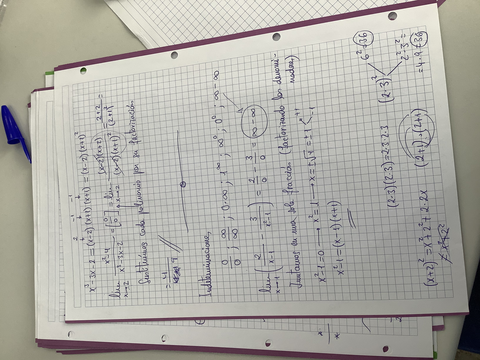 x³-3x-2 = (x-2)(x+1)(x+1) = (x-2)(x+1)²
lim x→2 x²-4 / x³-3x-2 = [0/0] = lim x→2 (x-2)(x+2) / (x-2)(x+1)² = 2+2 / (2+1)² =
Sustituimos cada polinomio por su factorización.
= 4/9
Indeterminaciones
0/0 ; ∞/∞ ; 0·∞ ; 1^∞ ; ∞⁰ ; 0⁰ ; ∞-∞
lim x→1 (2/x-1 - 3/x²-1) = 2/0 - 3/0 = ∞-∞
Juntamos en una sola fracción (factorizando los denominadores)
x²-1=0 → x²=1 → x=±√1=±1 < +1 -1
x²-1=(x-1)(x+1)
6²=36
(2·3)²
2²·3²=
=4·9=36
(2·3)(2·3)=2·3·2·3
(2+1)·(2+1)
(x+2)²=x²+2²+2·2x